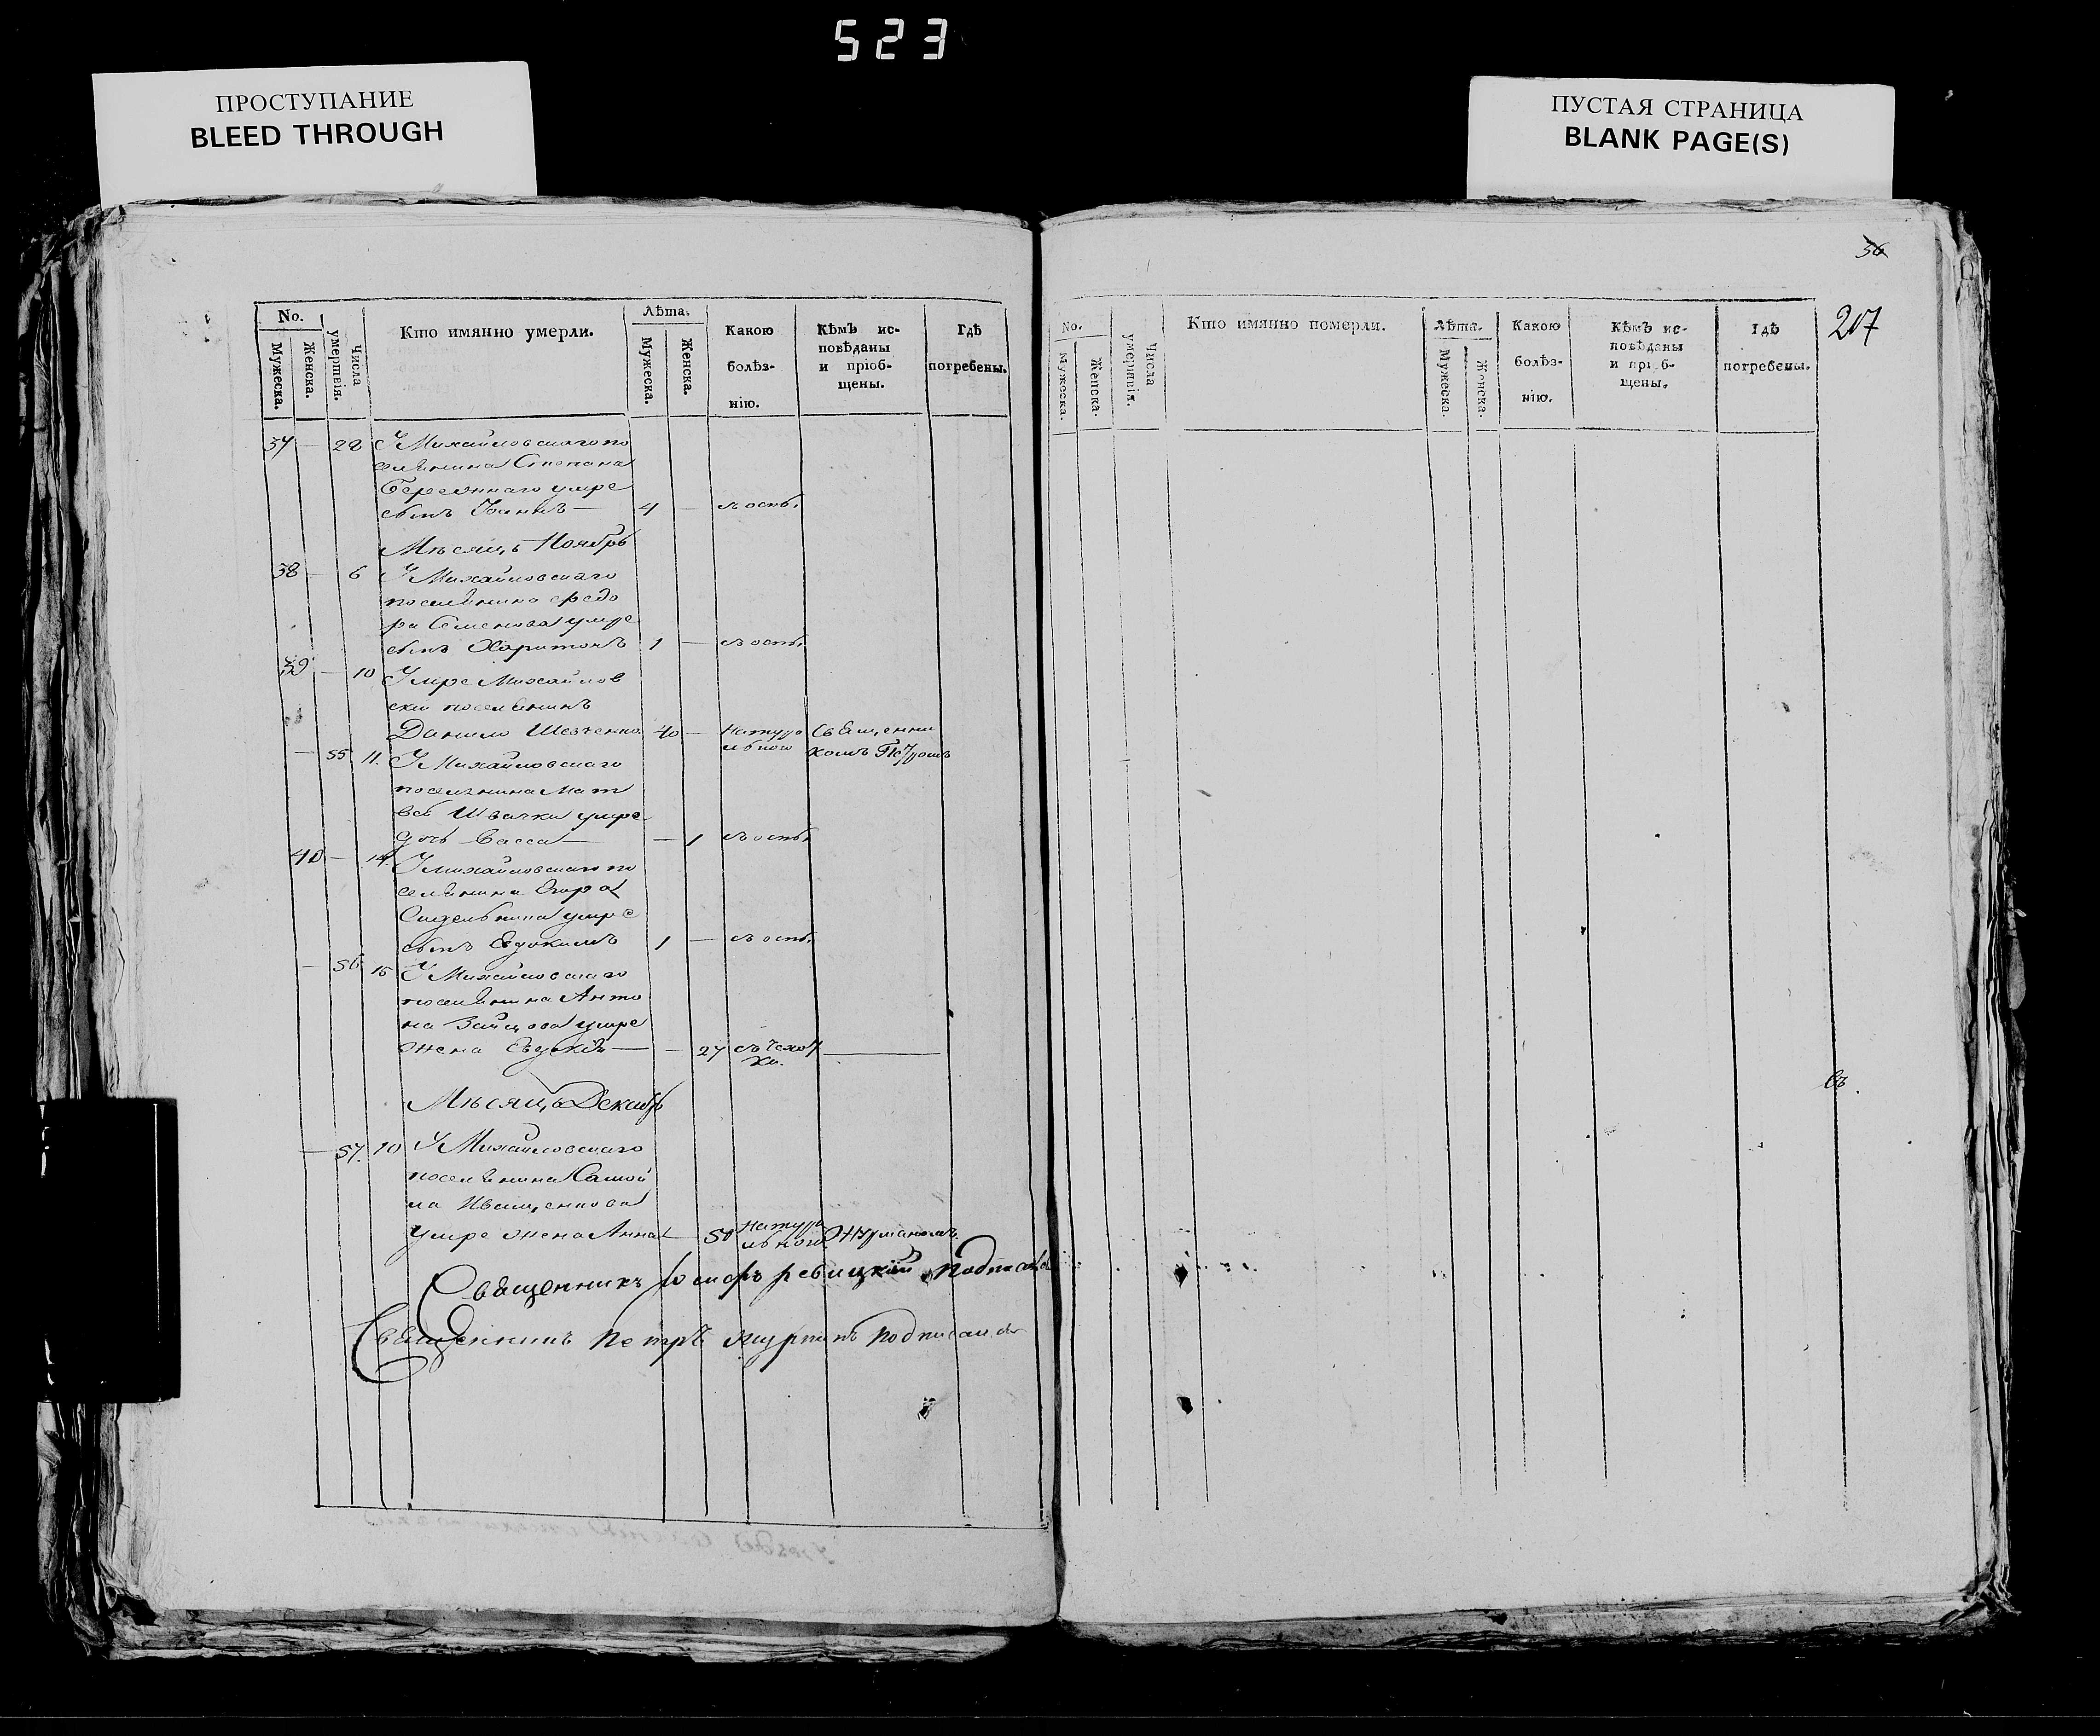 523
ПРОСТУПАНИЕ
BLEED THROUGH
ПУСТАЯ СТРАНИЦА
BLANK PAGE(S)
No.
Мужеска.
Женска.
Числа умертвія.
Кто имянно умерли.
Лѣта.
Мужеска.
Женска.
Какою
болѣз-
нію.
Кѣмъ ис-
повѣданы
и пріоб-
щены.
Гдѣ
погребены.
37 — 28 У Михайловскаго по
селянина Степана
умре
сынъ Іоаннъ — 4 —
Мѣсяцъ Ноябрь
38 — 6 У Михайловскаго
поселянина Федо
ра Семенова умре
сынъ Харитонъ 1 —
39 — 10 Умре Михайлов
скій поселянинъ
Данило Шевченко 40 — Натура Священни
льною комъ Петромъ
— 55 11. У Михайловскаго
поселянина Мат
вѣя Швачки умре
дочь Васса — 1
40 — 14. У Михайловскаго по
селянина Егора
Сидельника умре
сынъ Евдокимъ 1 —
— 56 15 У Михайловскаго
поселянина Анто
на Зайцова умре
жена — 27
Мѣсяцъ Декабрь
— 57. 10 У Михайловскаго
поселянина Самой
ла Иващенкова
умре жена Анна — 50 Натура
льною
Священникъ Іосифъ подписался
Священникъ Петръ подписался
36
207
No.
Мужеска.
Женска.
Числа умертвія.
Кто имянно померли.
Лѣта.
Мужеска.
Женска.
Какою
болѣз-
нію.
Кѣмъ ис-
повѣданы
и пріоб-
щены.
Гдѣ
погребены.